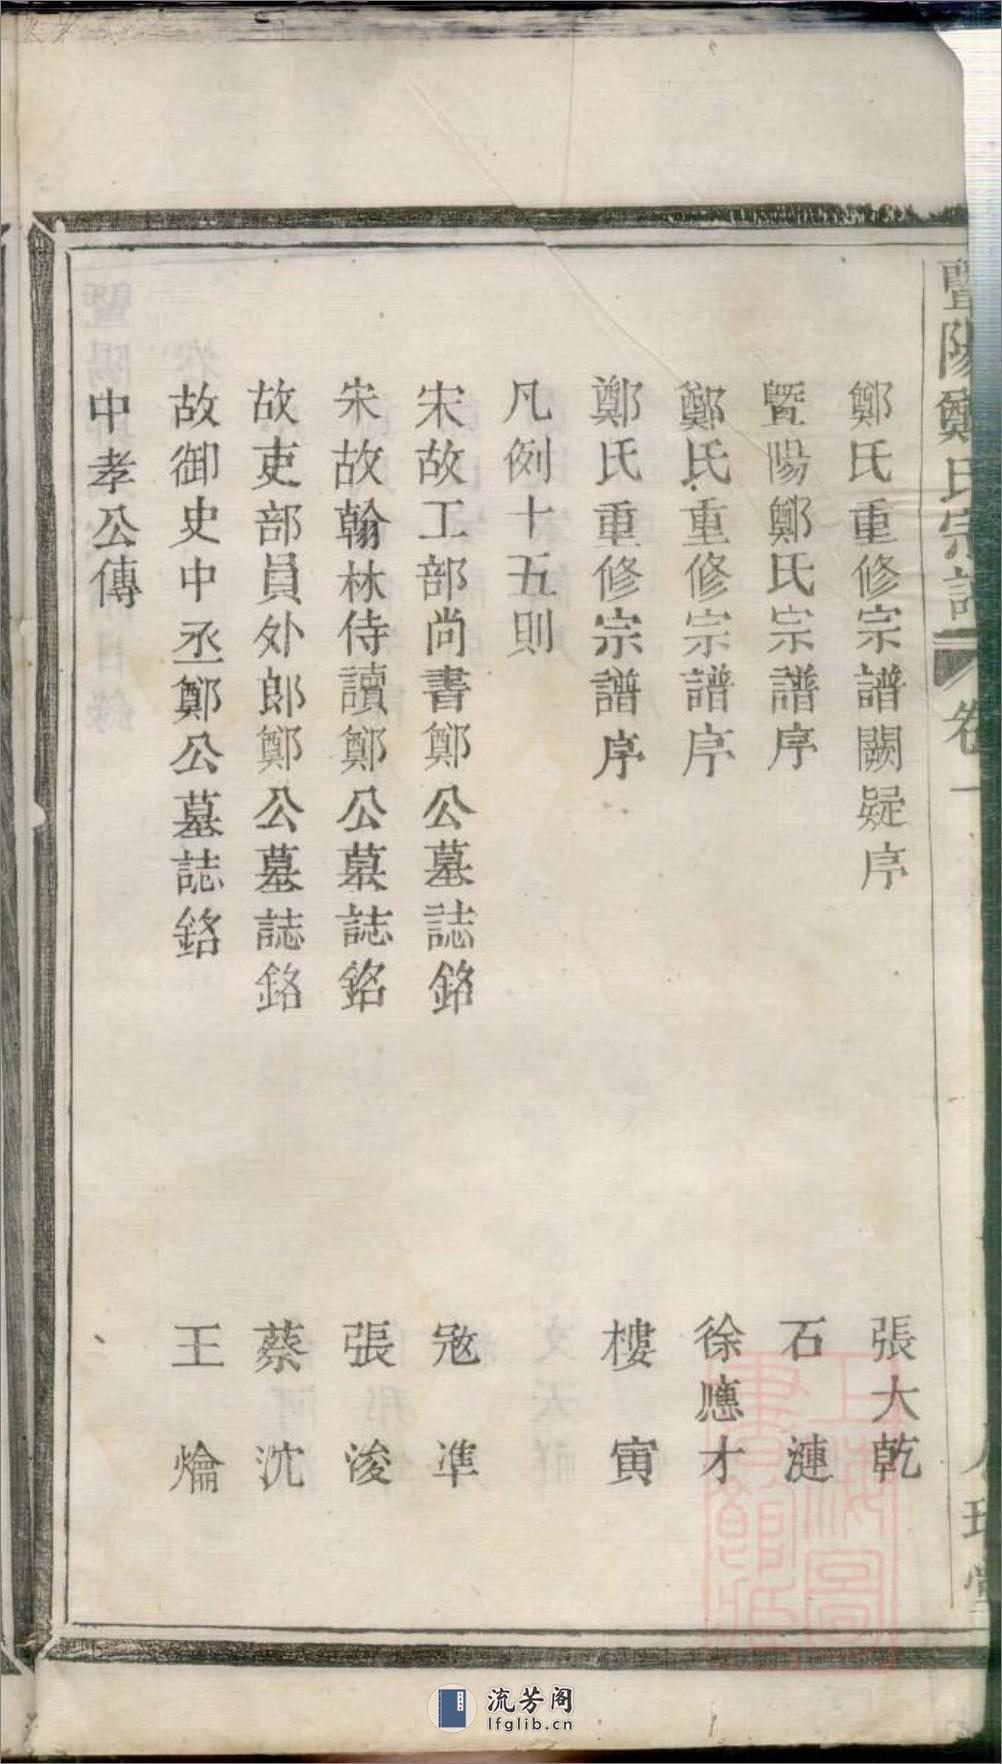 暨陽鄭氏宗譜 卷一
鄭氏重修宗譜闕疑序 張大乾
暨陽鄭氏宗譜序 石漣
鄭氏重修宗譜序 徐應才
鄭氏重修宗譜序 樓寅
凡例十五則
宋故工部尚書鄭公墓誌銘 寇準
宋故翰林侍讀鄭公墓誌銘 張浚
故吏部員外郎鄭公墓誌銘 蔡沈
故御史中丞鄭公墓誌銘 王爚
中孝公傳
上海圖書館藏
流芳阁
lfglib.cn